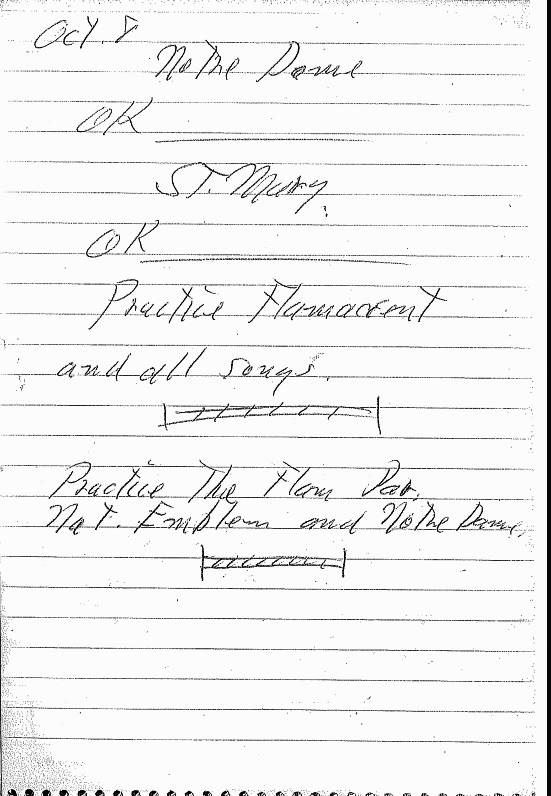 Oct. 8
Notre Dame
OK
ST. Mary.
OK
Practice Flamaccent
and all songs.
Practice The Flam Par.
Nat. Emblem and Notre Dame.